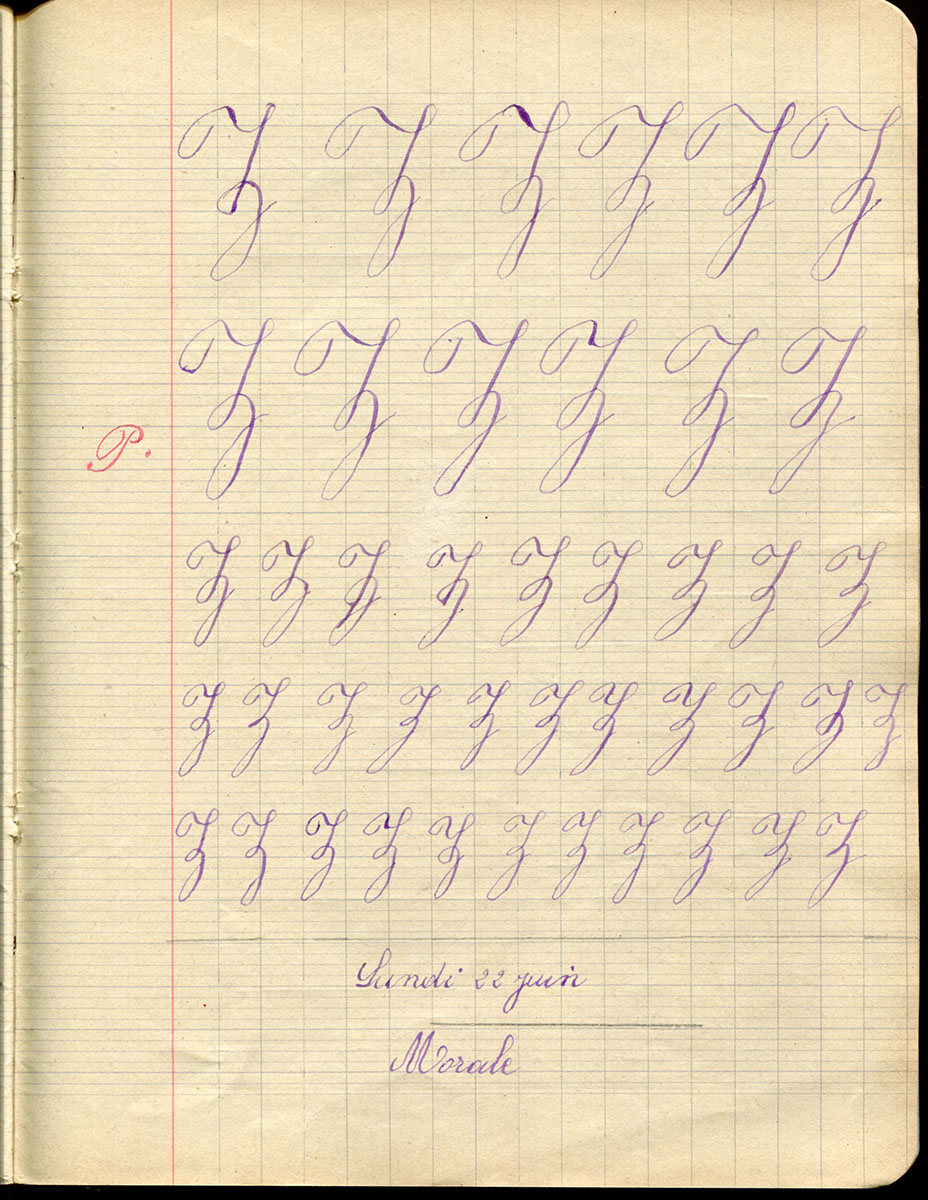 Z Z Z Z Z Z
Z Z Z Z Z Z
P.
Z Z Z Z Z Z Z Z Z
Z Z Z Z Z Z Z Z Z Z Z
Z Z Z Z Z Z Z Z Z Z Z
Lundi 22 juin
Morale